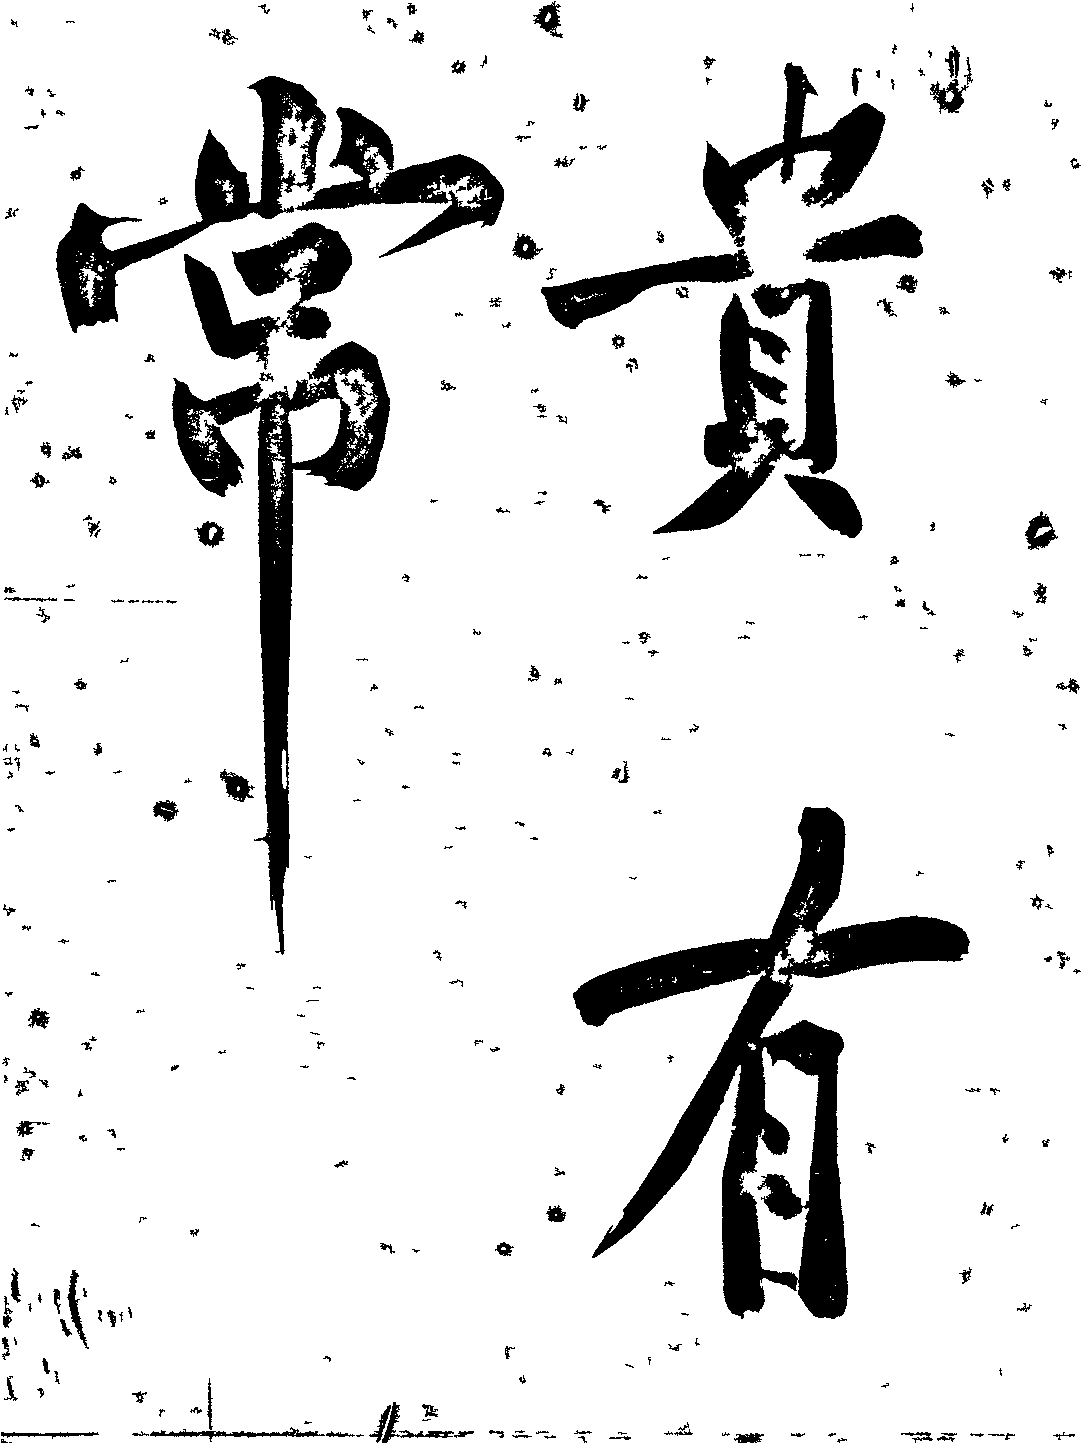 貴有
常